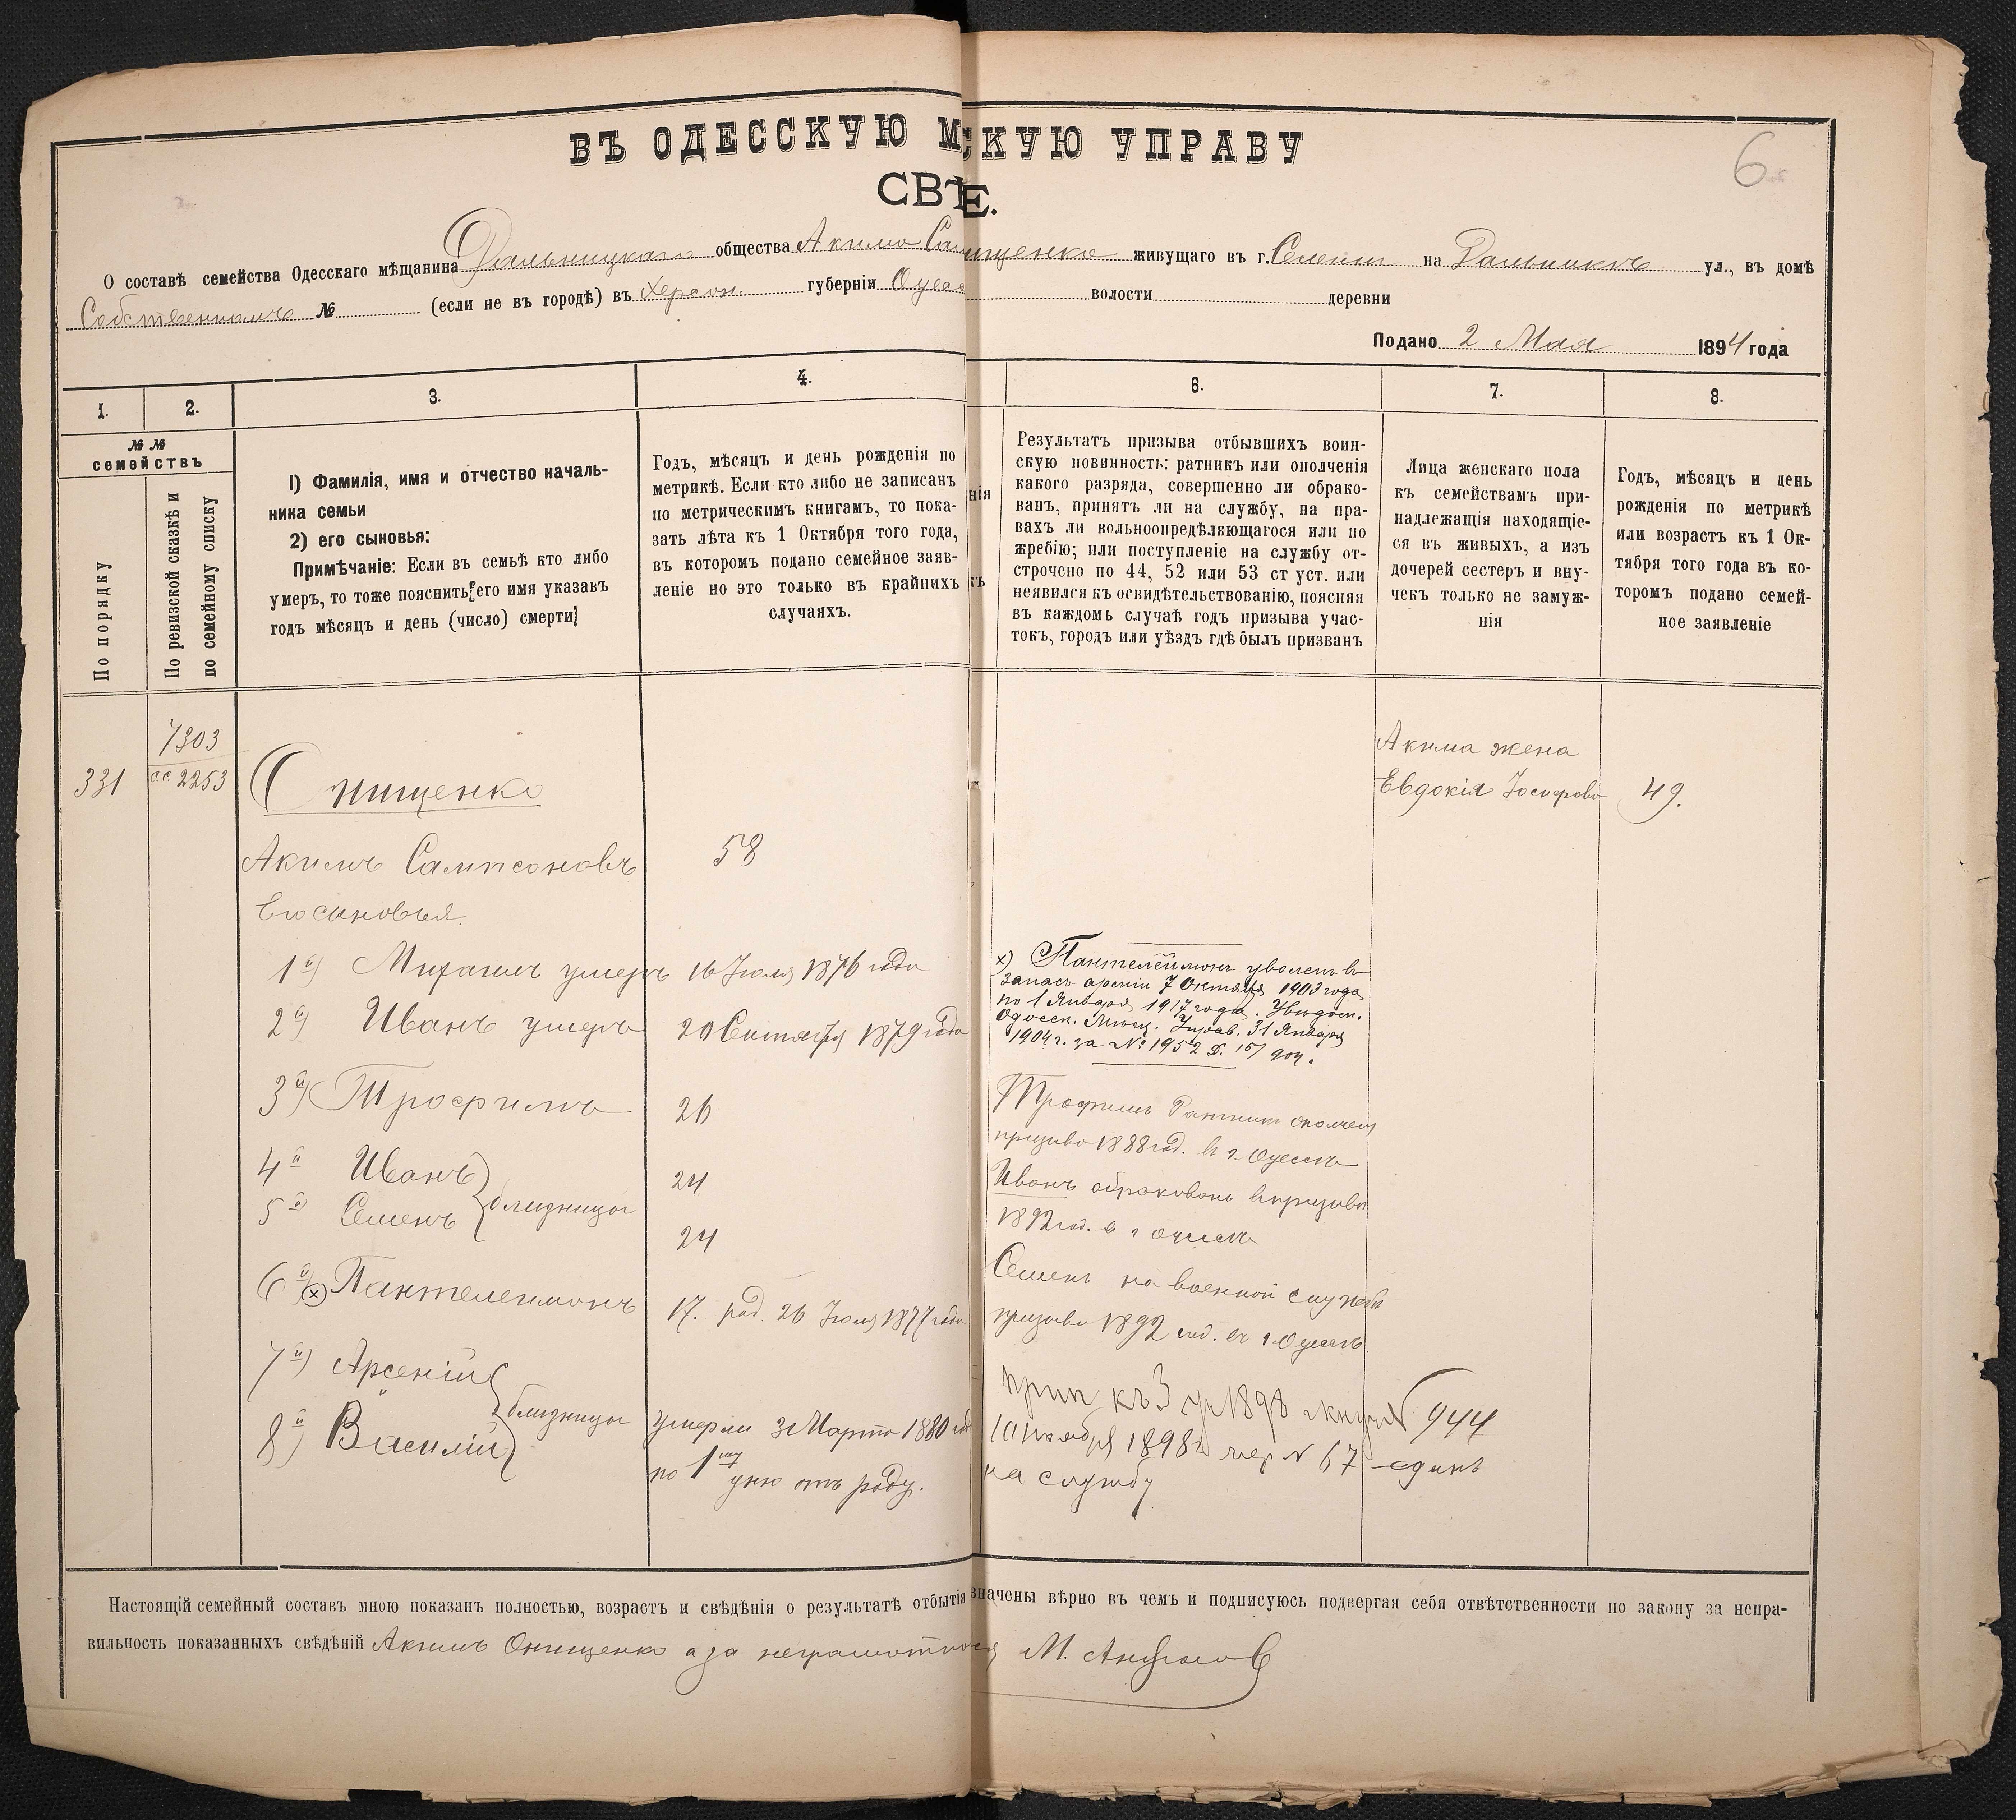 ВЪ ОДЕССКУЮ М СКУЮ УПРАВУ
6
СВѢ Е.
О составѣ семейства Одесскаго мѣщанина Дальницкаго общества Акима живущаго въ г. Селеніи на Дальникъ ул., въ домѣ
Собственномъ № (если не въ городѣ) въ Херсон. губерніи Одесс волости деревни
Подано 2 Мая 1894 года
1. 2. 3. 4. 6. 7. 8.
№ №
семействъ
По порядку
По ревизской сказкѣ и
по семейному списку
1) Фамилія, имя и отчество началь-
ника семьи
2) его сыновья:
Примѣчаніе: Если въ семьѣ кто либо
умеръ, то тоже пояснить его имя указавъ
годъ мѣсяцъ и день (число) смерти
Годъ, мѣсяцъ и день рожденія по
метрикѣ. Если кто либо не записанъ
по метрическимъ книгамъ, то пока-
зать лѣта къ 1 Октября того года,
въ которомъ подано семейное заяв-
леніе но это только въ крайнихъ
случаяхъ.
нія
къ
Результатъ призыва отбывшихъ воин-
скую повинность: ратникъ или ополченія
какого разряда, совершенно ли обрако-
ванъ, принятъ ли на службу, на пра-
вахъ ли вольноопредѣляющагося или по
жребію; или поступленіе на службу от-
строчено по 44, 52 или 53 ст уст. или
неявился къ освидѣтельствованію, поясняя
въ каждомь случаѣ годъ призыва учас-
токъ, городъ или уѣздъ гдѣ былъ призванъ
Лица женскаго пола
къ семействамъ при-
надлежащія находящіе-
ся въ живыхъ, а изъ
дочерей сестеръ и вну-
чекъ только не замуж-
нія
Годъ, мѣсяцъ и день
рожденія по метрикѣ
или возрастъ къ 1 Ок-
тября того года въ ко-
торомъ подано семей-
ное заявленіе
331
7303
с.с. 2253
Онищенко
Акимъ Сампсоновъ 58
Его сыновья.
1й) Михаилъ умеръ 16 Іюля 1876 года
2й) Иванъ умеръ 20 Сентября 1879 года
3й) Трофимъ 26
4й Иванъ 24
5й Семенъ близнецы 24
6й) (х) Пантелеимонъ 17. род. 26 Іюля 1877 года
7й) Арсеній
8й) Василій близнецы умерли 3 Марта 1880 год
по 1му дню отъ роду.
х) Пантелеймонъ уволенъ въ
запасъ арміи 7 Октября 1903 года
по 1 Января 1917 года. Увѣдом.
Одесск. Мѣщ. Управ. 31 Января
1904 г. за № 1952
Трофимъ Ратникъ ополчен
призыва 1888 год. въ г. Одессѣ
Иванъ обракованъ въ призывѣ
1892 год. в г Одессѣ
Семенъ на военной службѣ
призыва 1892 год. въ г. Одессѣ
944
10 Ноября 1898 г № 67
на службу
Акима жена
Евдокія Іосифова 49.
Настоящій семейный составъ мною показанъ полностью, возрастъ и свѣдѣнія о результатѣ отбытія значены вѣрно въ чемъ и подписуюсь подвергая себя отвѣтственности по закону за непра-
вильность показанныхъ свѣдѣній Акимъ Онищенко а за неграмотност М.